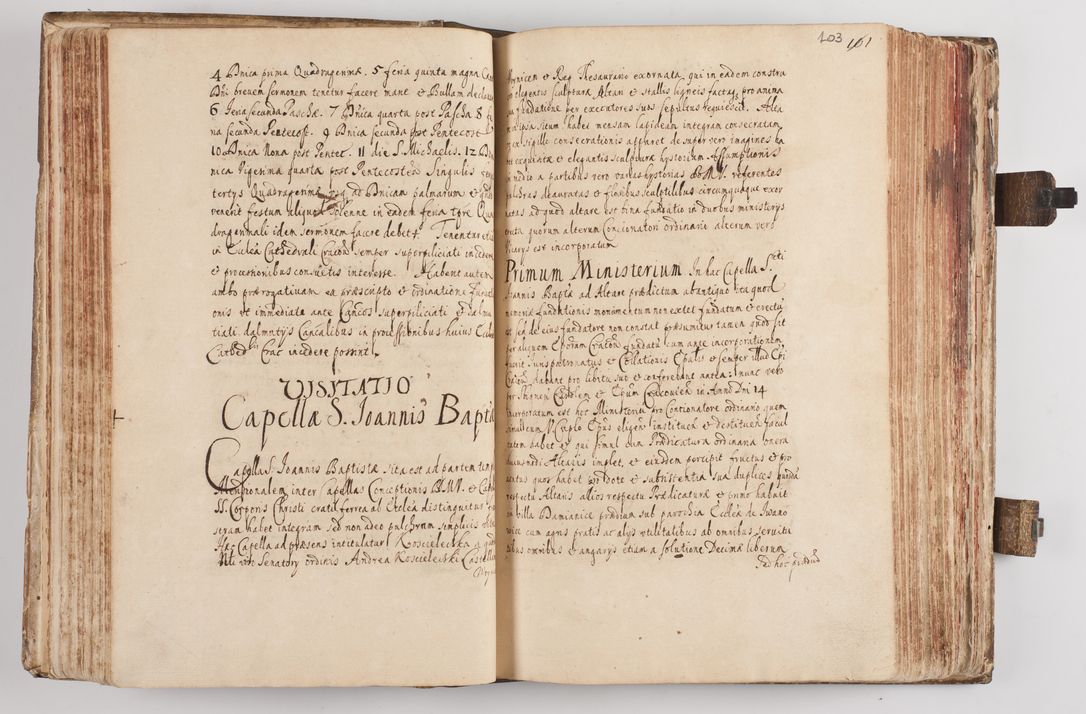 4 Dnica prima Quadragenmæ. 5 feria quinta magna
Dñi breuem sermonem tenetur facere mane & Bullam
6 Feria secunda Paschæ. 7 Dnica quarta post Pascha 8
na secunda Pentecost. 9 Dnica secunda post Pentecost
10 Dnica Nona post Pentec. 11 die S. Michaelis. 12
nica Vigesima quarta post Pentecosten Singulis vero
tertys Quadragenmæ ad Dnicam palmarum &
venerit festum aliquod solenne in eadem feria tpre Qua
dragenmali idem sermonem facere debet. Tenentur
in Ecclea Cathedrali Cracoñ semper superpiliciati incedere
& processionibus consuetis interesse. Habent autem
ambo prærogativam ex præscripto & ordinatione
onis ut immediate ante Cancos superpiliciati &
tiati dalmatys Cancalibus in processionibus huius Eccleæ
Cathedlis Crac incedere possint
VISITATIO
Capellæ S. Ioannis Baptæ
Capella S. Ioannis Baptistæ sita est ad partem templi
Meridionalem inter Capellas Conceptionis B.M.V. &
SS. Corporis Christi crati ferrea ab Ecclea distinguitur
seram habet integram sed non adeo pulchram simplicis
Hæc Capella ad præsens intitulatur Koscielecka a
Illi viro Senatory ordinis Andrea Koscielecki
103 101
& Reg Thesaurario exornata, qui in eadem constra
elegantis sculptura Altari & stallis ligneis factis, pro anima
fundatione per executores suos sepultus requiescit. Alta
situm habet mensam lapideam integram consecratam
sigillo consecrationis apparet desuper vero imagines
exquisitæ & elegantis sculpturæ hystoriam Assumptionis
in medio a partibus vero varias hystorias B.M.V. referentes
deauratas & floribus sculptilibus circumquaque exor
natas ad quod altare est bina fundatio in duobus ministerys
quorum alterum Concionatori ordinario alterum vero
est incorporatum
Primum Ministerium In hac Capella Scti
Ioannis Baptæ ad Altare prædictum ab antiquo ita quod
fundationis monumentum non extet fundatum & erectũ
est sed de eius fundatore non constat præsumitur tamen quod sit
per aliquem Eporum Cracoñ fundatũ cum ante incorporationem
fuerit Iurispatronatus & Collationis Epalis & semper illud Epi
Cracoñ dabant pro libitu suo & conferebant antea: nunc vero
per Cardlem & Epum Cracovien in Anno Dni 14
incorporatum est hoc Ministeriũ pro Contionatore ordinario quem
V. Caplo Epus eligen instituen & destituen facul
tatem habet & qui simul cum Prædicatura ordinaria onera
eiusmodi Altaris implet, & eiusdem percipit fructus & pro
uentus quos habet pro Dote & subsistentia sua duplices
respectu Altaris alios respectu Prædicaturæ & primo habuit
in villa Damianice prædium sub parochia Ecclea de
cum agris pratis ac alys utilitatibus ab omnibus servitu
tibus omnibus & angarys etiam a solutione Decimæ liberum
Ad hoc prædiũ